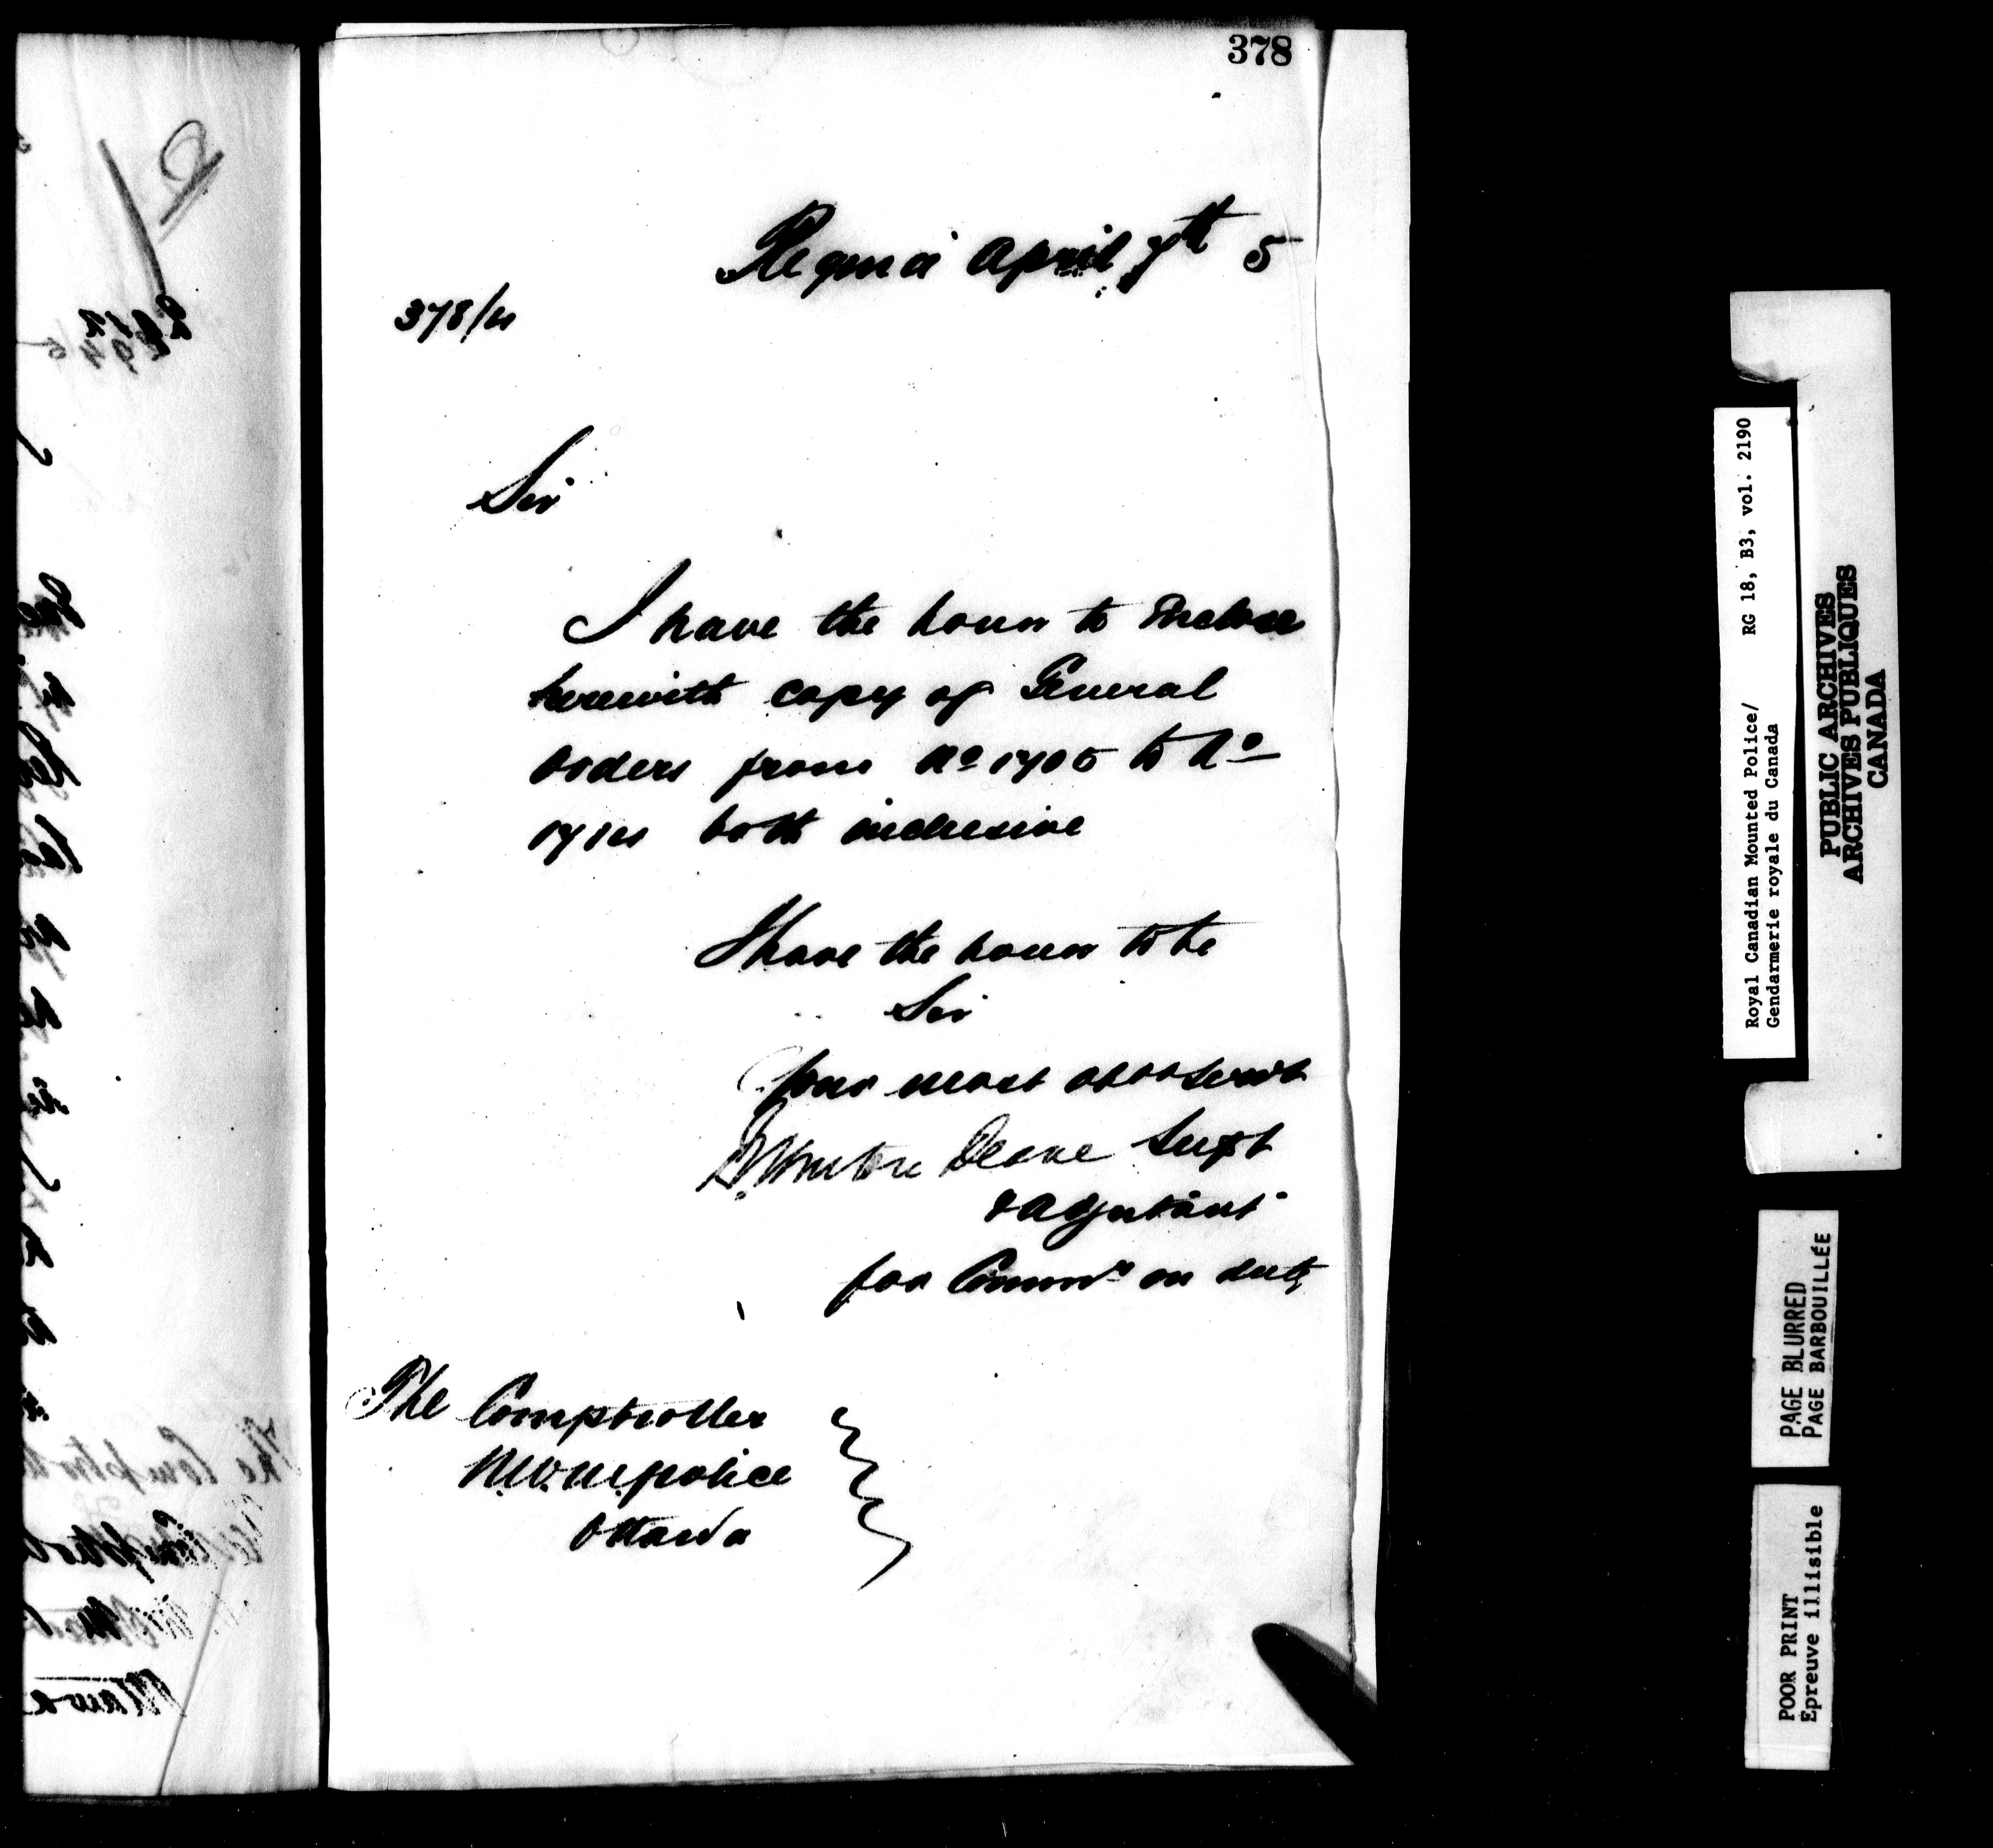 378
Regina April 7th 5
378/
Sir
I have the honor to Enclose
herewith copy of General
Orders from No 1705 to No
both inclusive
I have the honor to be
Sir
Your most obdt servt
Deane Supt
& Adjutant
for Commr on duty
The Comptroller
N.W.M. police
Ottawa
The Comptro
Royal Canadian Mounted Police/ RG 18, B3, vol. 2190
Gendarmerie royale du Canada
PUBLIC ARCHIVES
ARCHIVES PUBLIQUES
CANADA
PAGE BLURRED
PAGE BARBOUILLÉE
POOR PRINT
Epreuve illisible